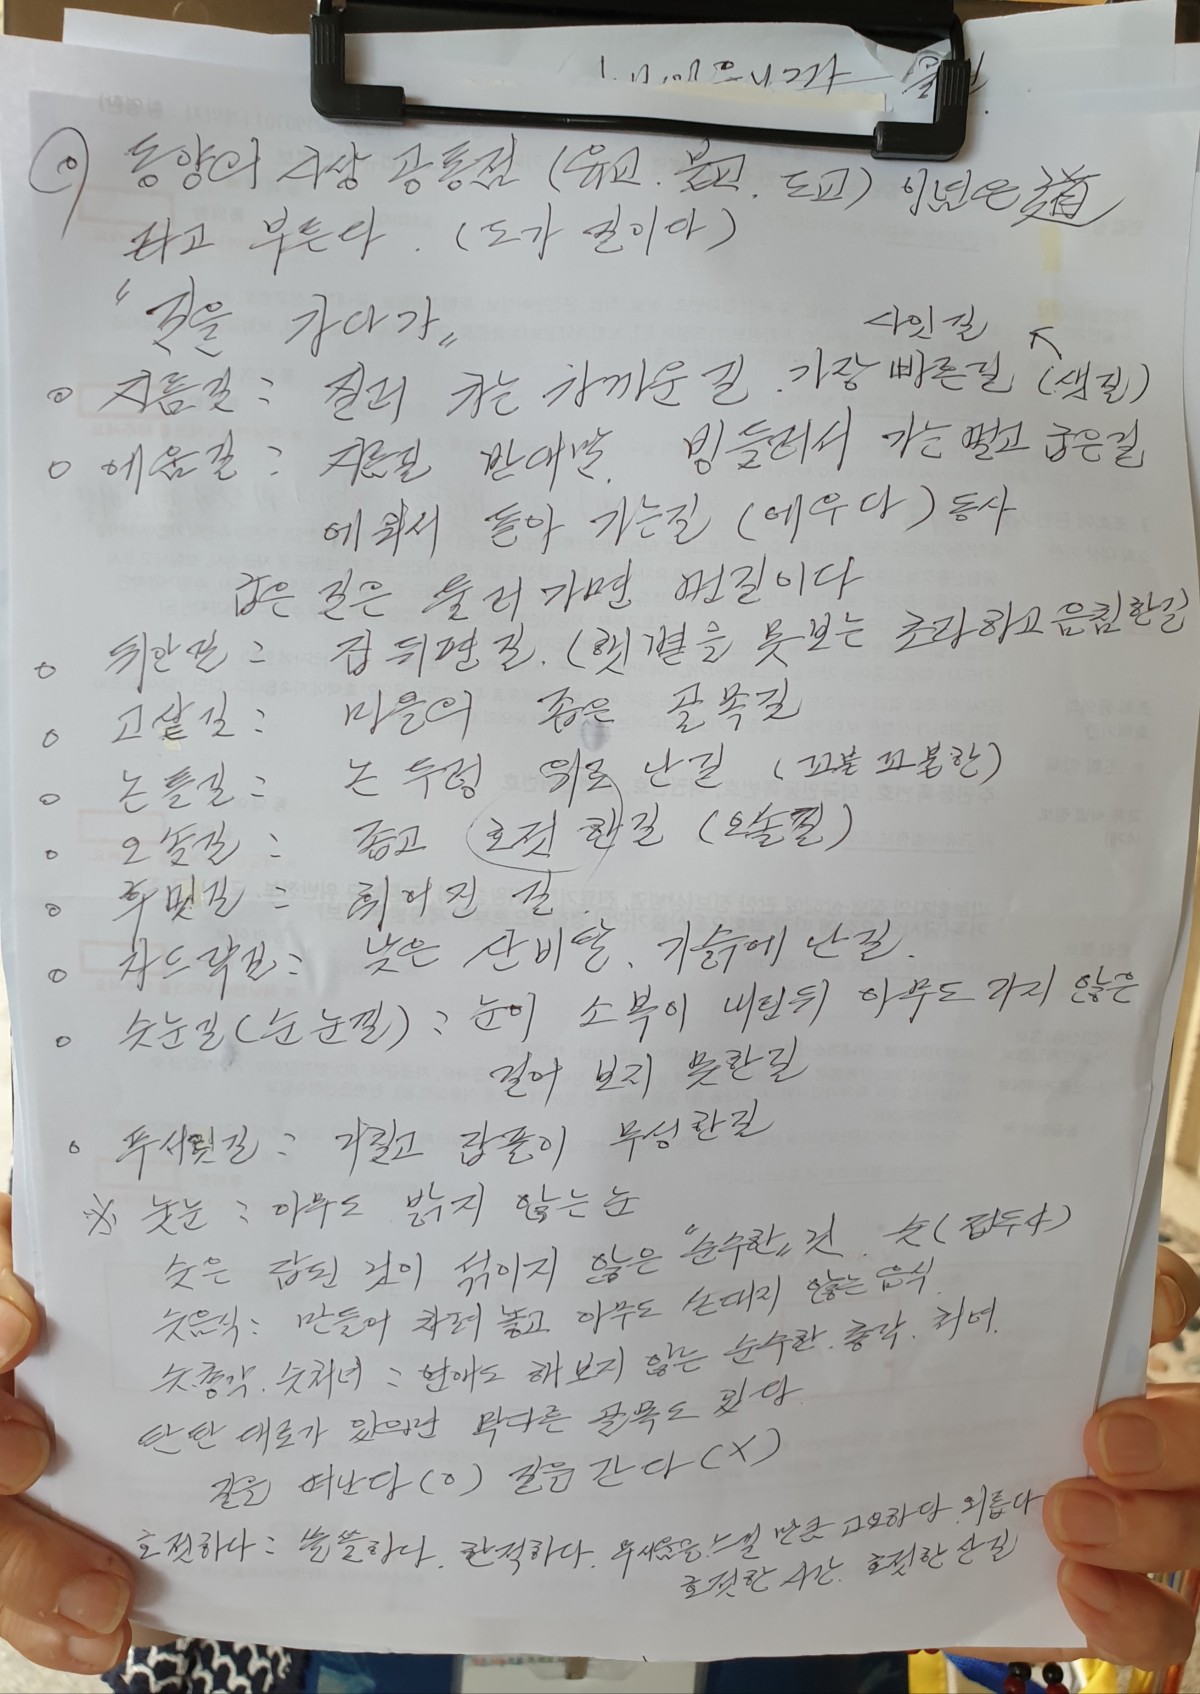 동양의 사상 공통점 (유교. 불교. 도교) 이념은 道
라고 부른다. (도가 길이다)
"길을 가다가"
사잇길 ↖
○ 지름길 : 질러 가는 가까운 길. 가장 빠른길 (샛길)
○ 에움길 : 지름길 반대말. 빙둘러서 가는 멀고 굽은길
에워서 돌아 가는길 (에우다) 동사
굽은 길은 둘러가면 먼길이다
○ 뒤안길 : 집 뒤편 길. (햇볕을 못보는 초라하고 음침한길
○ 고샅길 : 마을의 좁은 골목길
○ 논틀길 : 논 두렁 위로 난길 (꼬불꼬불한)
○ 오솔길 : 좁고 호젓한길 (오솔낄)
○ 후밋길 : 휘어진 길.
○ 자드락길 : 낮은 산비탈. 기슭에 난길.
○ 숫눈길 (순눈낄) : 눈이 소복이 내린뒤 아무도 가지 않은
걸어 보지 못한길
○ 푸서릿길 : 거칠고 잡풀이 무성한길
※ 숫눈 : 아무도 밟지 않는 눈
숫은 잡된 것이 섞이지 않은 "순수한" 것. 숫(접두사)
숫음식 : 만들어 차려 놓고 아무도 손대지 않는 음식.
숫총각. 숫처녀 : 연애도 해보지 않는 순수한. 총각. 처녀.
탄탄 대로가 있으면 막다른 골목도 있다.
길을 떠난다 (○) 길을 간다 (X)
호젓하다 : 쓸쓸하다. 한적하다. 무서움을 느낄 만큼 고요하다. 외롭다
호젓한 시간. 호젓한 산길